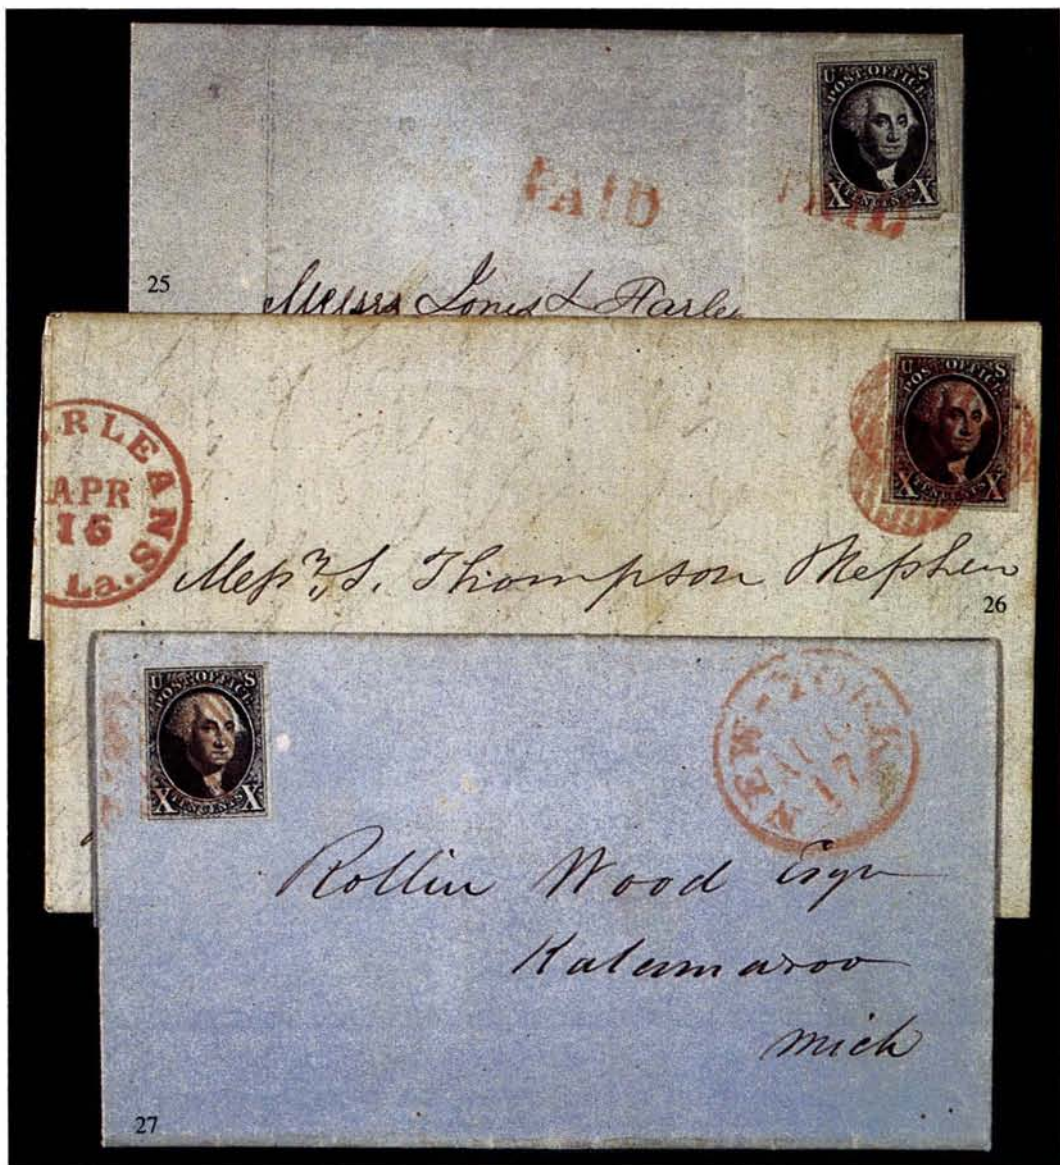 U S
POST OFFICE
X TEN CENTS X
PAID
25
Messrs Jones & Farley
U S
POST OFFICE
X TEN CENTS X
RLEANS
APR
16
La.
Messrs S. Thompson
26
U S
POST OFFICE
X TEN CENTS X
NEW-YORK
17
Rollin Wood Esqr
Kalamazoo
mich
27